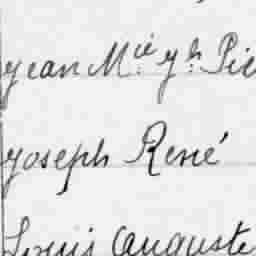 Jean M.ie Jh Pie
Joseph René
Louis Auguste